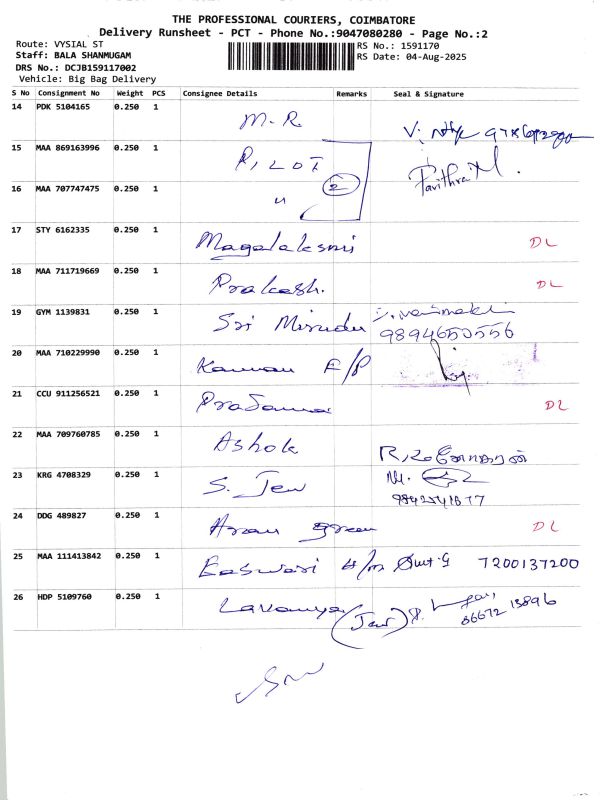 THE PROFESSIONAL COURIERS, COIMBATORE
Delivery Runsheet - PCT - Phone No.:9047080280 - Page No.:2
Route: VYSIAL ST
Staff: BALA SHANMUGAM
DRS No.: DCJB159117002
Vehicle: Big Bag Delivery
RS No.: 1591170
RS Date: 04-Aug-2025
S No Consignment No Weight PCS Consignee Details Remarks Seal & Signature
14 PDK 5104165 0.250 1 M.R
15 MAA 869163996 0.250 1 PILOT Pavithra M.
16 MAA 707747475 0.250 1 " 2
17 STY 6162335 0.250 1 Magalaksmi DL
18 MAA 711719669 0.250 1 Prakash. DL
19 GYM 1139831 0.250 1 Sri Mirudu 9894650556
20 MAA 710229990 0.250 1 Kannan E/P
21 CCU 911256521 0.250 1 Prasanna DL
22 MAA 709760785 0.250 1 Ashok
23 KRG 4708329 0.250 1 S. Jew
24 DDG 489827 0.250 1 Aran green DL
25 MAA 111413842 0.250 1 Easwari 7200137200
26 HDP 5109760 0.250 1 Lavanya (Jew) 86672 13896